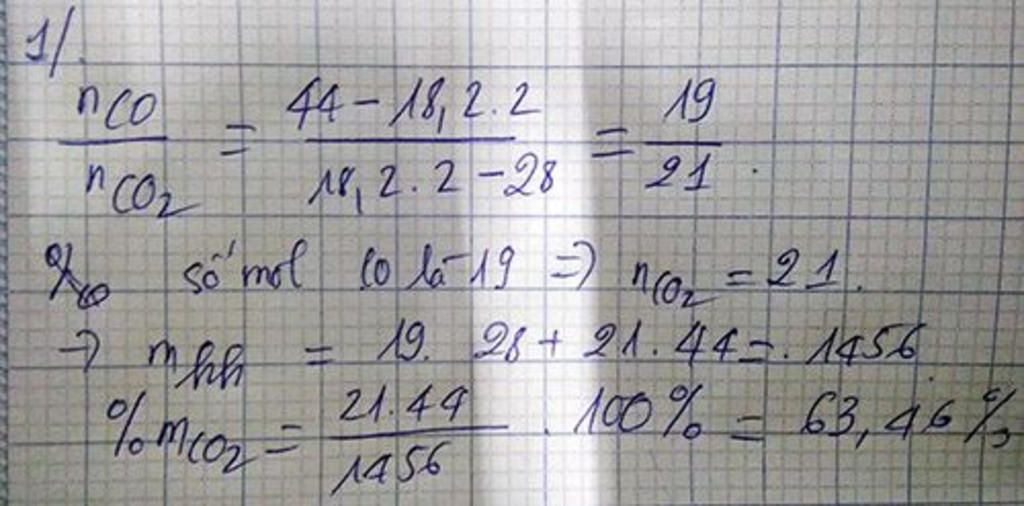 1/.
nCO / nCO2 = 44 - 18,2.2 / 18,2.2 - 28 = 19 / 21.
số mol CO là 19 => nCO2 = 21.
-> mhh = 19. 28 + 21.44 = 1456.
%mCO2 = 21.44 / 1456 . 100% = 63,46%